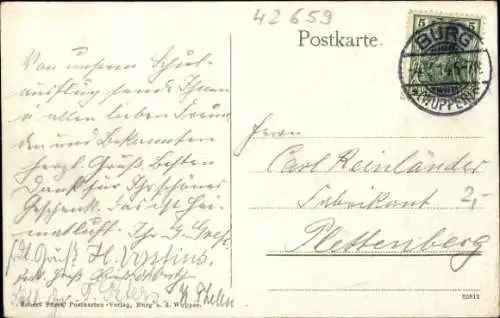 42659
Postkarte.
5 5
BURG
(WUPPER)
Von unserem Schul-
ausflug sendet Ihnen
u allen lieben Freun
den und Bekannten
herzl. Grüße. Besten
Dank für Ihr schönes
Geschenk. Das ist Hei
matluft. Ihr G.
Gruß H.
Herrn
Carl Reinländer
Fabrikant
Plettenberg
Postkarten-Verlag, Burg a. d. Wupper.